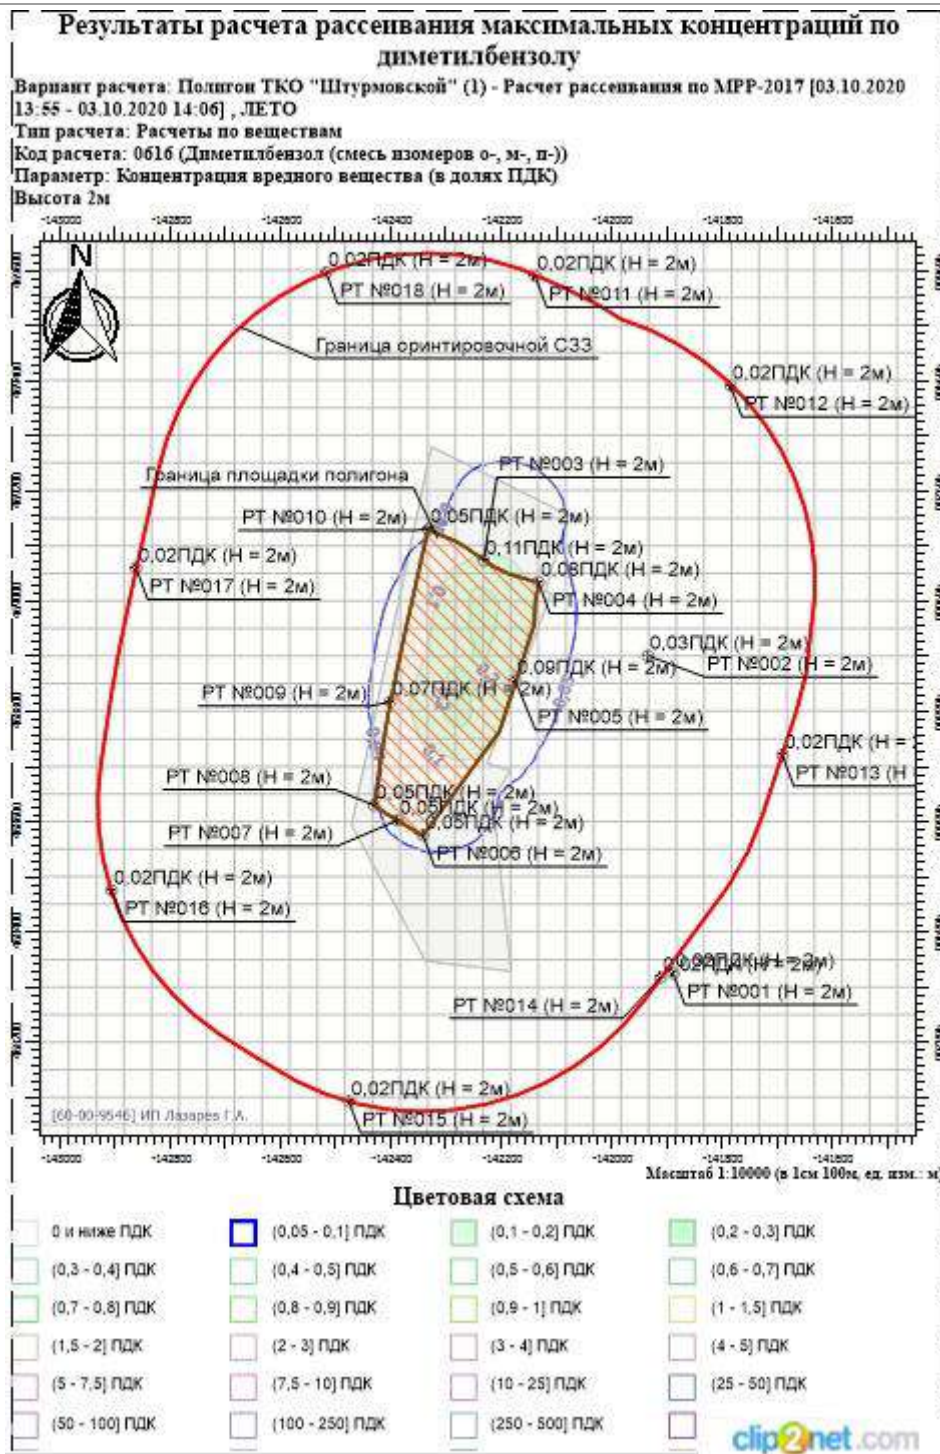 Результаты расчета рассеивания максимальных концентраций по
диметилбензолу
Вариант расчета: Полигон ТКО "Штурмовской" (1) - Расчет рассеивания по МРР-2017 [03.10.2020
13:55 - 03.10.2020 14:06] , ЛЕТО
Тип расчета: Расчеты по веществам
Код расчета: 0616 (Диметилбензол (смесь изомеров о-, м-, п-))
Параметр: Концентрация вредного вещества (в долях ПДК)
Высота 2м
-143000 -142800 -142600 -142400 -142200 -142000 -141800 -141600
N
0,02ПДК (H = 2м) 0,02ПДК (H = 2м)
РТ №018 (H = 2м) РТ №011 (H = 2м)
Граница оринтировочной СЗЗ
0,02ПДК (H = 2м)
РТ №012 (H = 2м)
Граница площадки полигона РТ №003 (H = 2м)
РТ №010 (H = 2м) 0,05ПДК (H = 2м)
0,11ПДК (H = 2м)
0,02ПДК (H = 2м) 0,08ПДК (H = 2м)
РТ №017 (H = 2м) РТ №004 (H = 2м)
0,1
0,03ПДК (H = 2м)
0,09ПДК (H = 2м) РТ №002 (H = 2м)
РТ №009 (H = 2м) 0,07ПДК (H = 2м)
РТ №005 (H = 2м)
0,1
0,02ПДК (H =
РТ №008 (H = 2м) РТ №013 (H
0,05ПДК (H = 2м)
0,05ПДК (H = 2м)
РТ №007 (H = 2м) 0,05ПДК (H = 2м)
РТ №006 (H = 2м)
0,02ПДК (H = 2м)
РТ №016 (H = 2м)
0,02ПДК (H = 2м)
РТ №014 (H = 2м) РТ №001 (H = 2м)
0,02ПДК (H = 2м)
[60-00-9546] ИП Лазарев Г.А. РТ №015 (H = 2м)
-143000 -142800 -142600 -142400 -142200 -142000 -141800 -141600
Масштаб 1:10000 (в 1см 100м, ед. изм.: м
Цветовая схема
0 и ниже ПДК (0,05 - 0,1] ПДК (0,1 - 0,2] ПДК (0,2 - 0,3] ПДК
(0,3 - 0,4] ПДК (0,4 - 0,5] ПДК (0,5 - 0,6] ПДК (0,6 - 0,7] ПДК
(0,7 - 0,8] ПДК (0,8 - 0,9] ПДК (0,9 - 1] ПДК (1 - 1,5] ПДК
(1,5 - 2] ПДК (2 - 3] ПДК (3 - 4] ПДК (4 - 5] ПДК
(5 - 7,5] ПДК (7,5 - 10] ПДК (10 - 25] ПДК (25 - 50] ПДК
(50 - 100] ПДК (100 - 250] ПДК (250 - 500] ПДК
clip2net.com